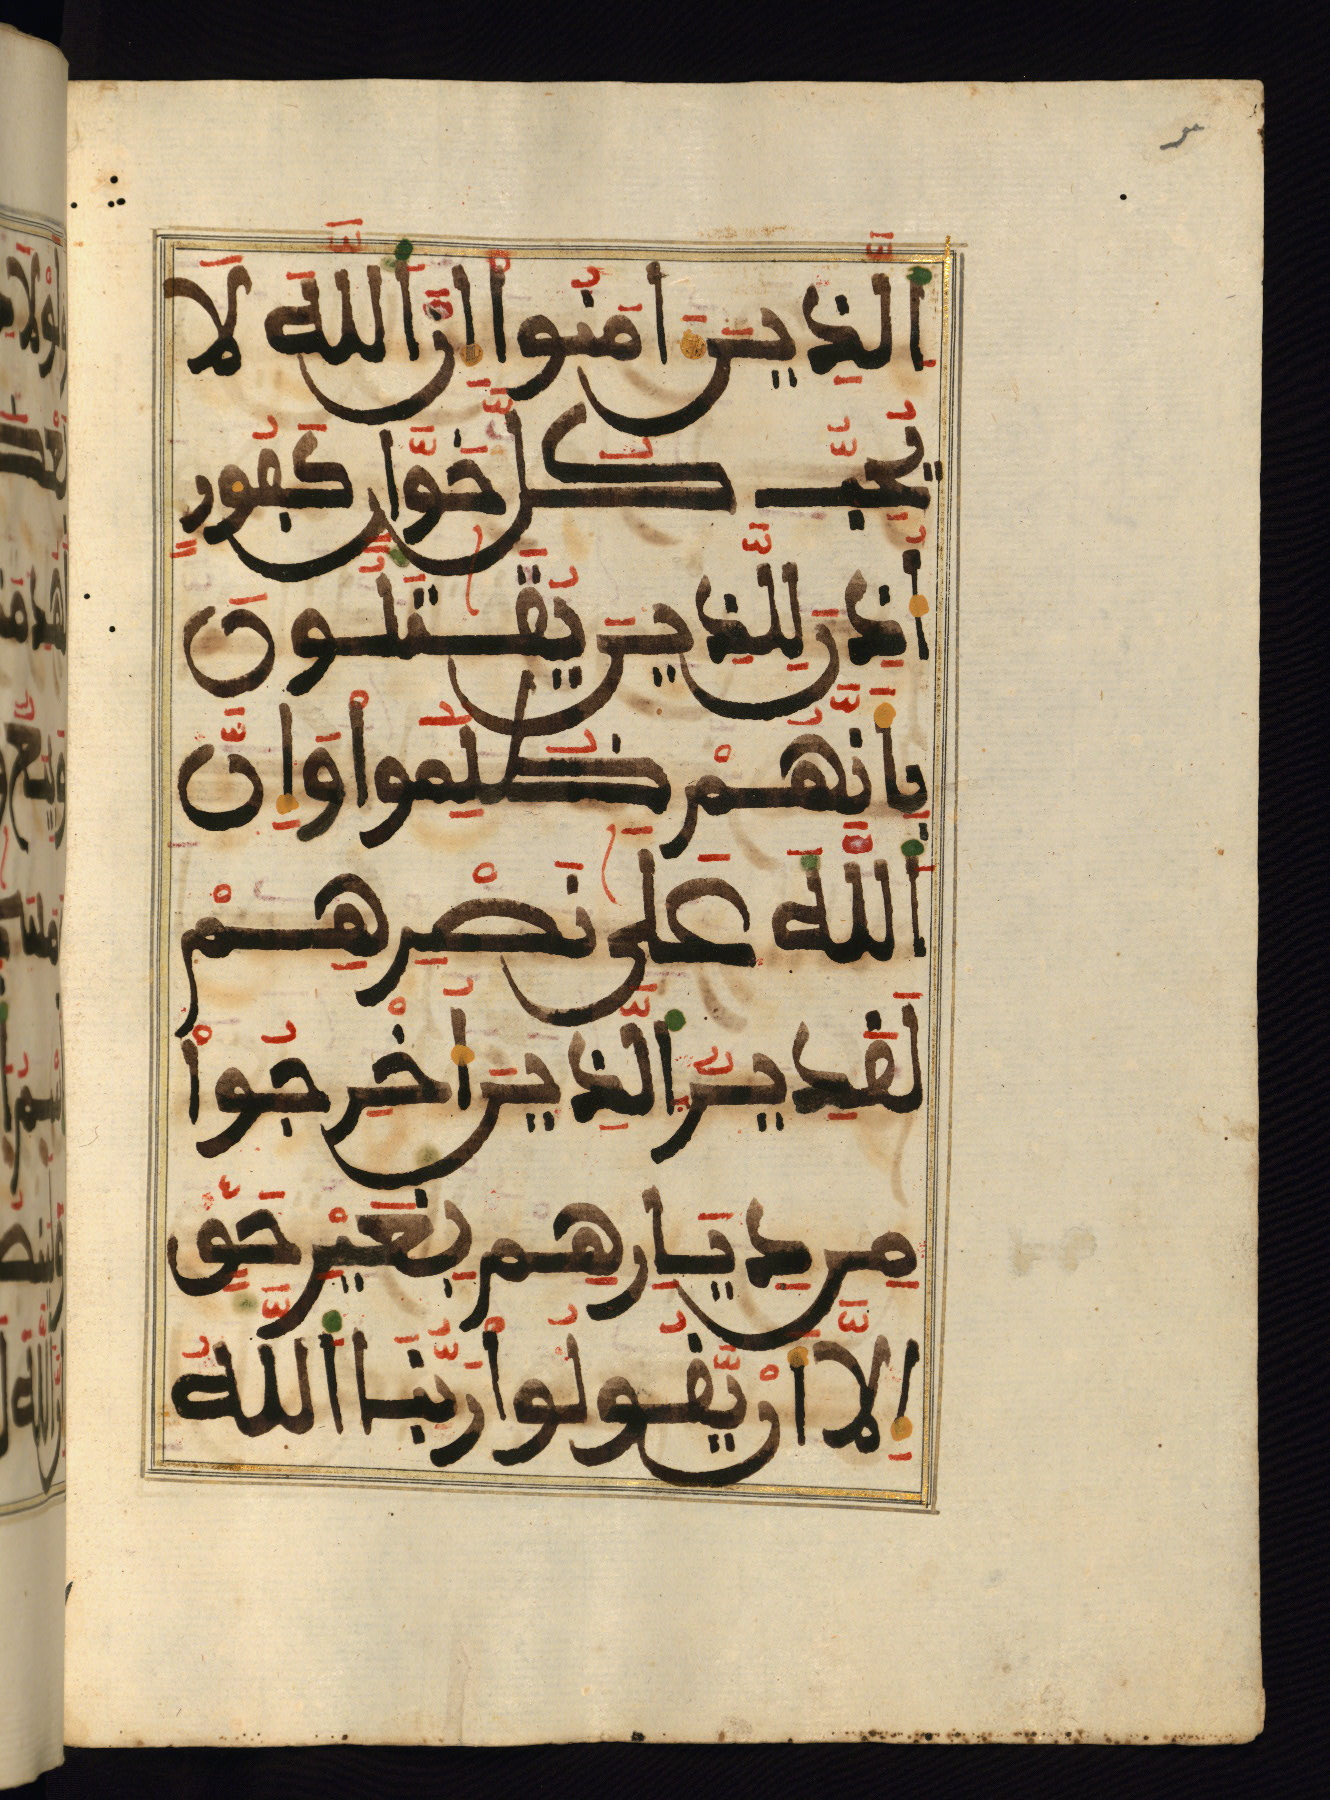 اَلذِينَ ءَامَنُواْ إِنَّ اَللَّهَ لَا
يُحِبُّ كُلَّ خَوَّانٍ كَفُورٍ
اُذِنَ لِلَّذِينَ يُقَٰتَلُونَ
بِأَنَّهُمْ ظُلِمُواْ وَإِنَّ
اَللَّهَ عَلَىٰ نَصْرِهِمْ
لَقَدِيرٌ اَلذِينَ أُخْرِجُواْ
مِن دِيَارِهِم بِغَيْرِ حَقٍّ
إِلَّا أَنْ يَّقُولُواْ رَبُّنَا اَللَّهُ